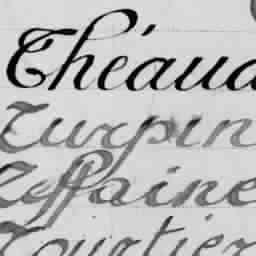 Théaud
Turpin
Tiffaine
Tourtier